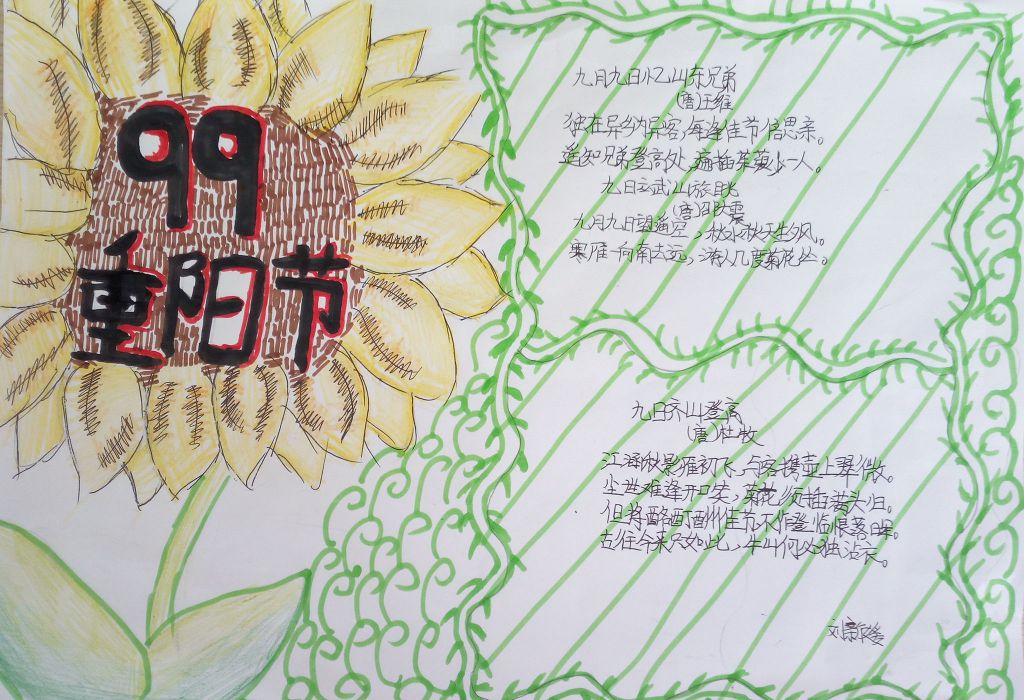 99
重阳节
九月九日忆山东兄弟
(唐)王维
独在异乡为异客,每逢佳节倍思亲。
遥知兄弟登高处,遍插茱萸少一人。
九日玄武山旅眺
(唐)邵大震
九月九日望遥空,秋水秋天生夕风。
寒雁一向南去远,游人几度菊花丛。
九日齐山登高
(唐)杜牧
江涵秋影雁初飞,与客携壶上翠微。
尘世难逢开口笑,菊花须插满头归。
但将酩酊酬佳节不作登临恨落晖。
古往今来只如此,牛山何必独沾衣。